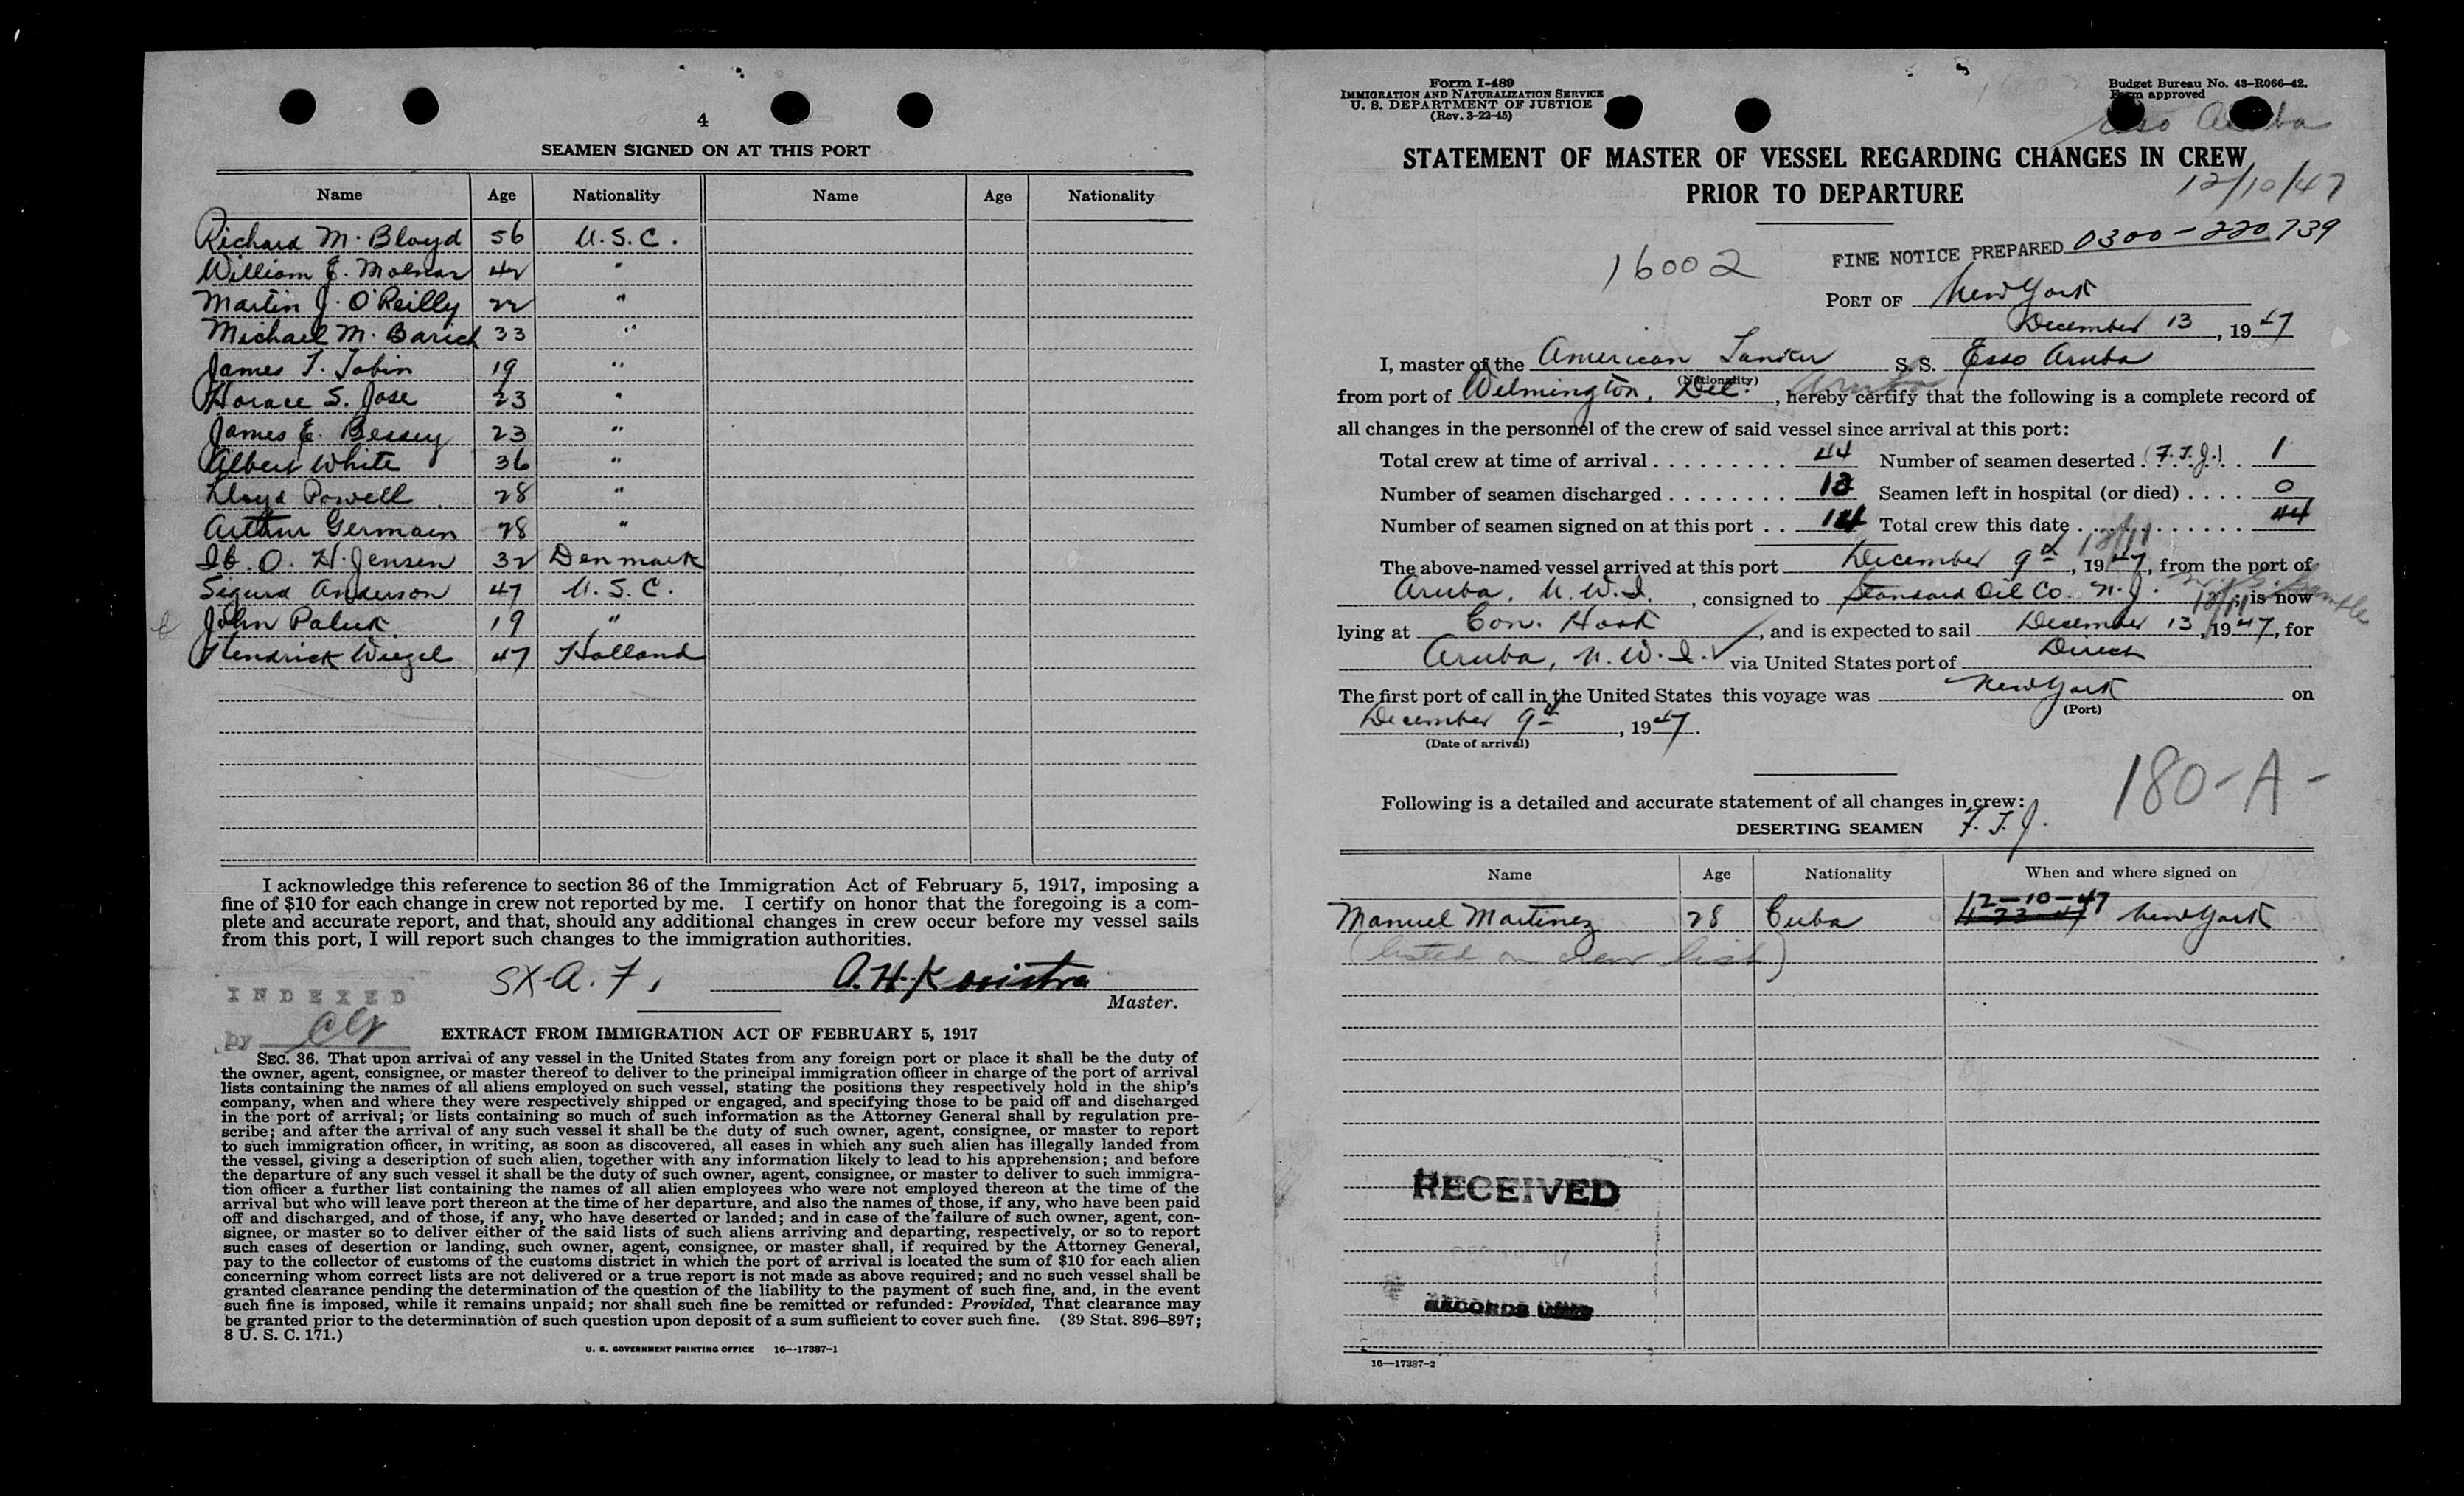 4
SEAMEN SIGNED ON AT THIS PORT
Name Age Nationality Name Age Nationality
Richard M. Bloyd 56 U.S.C.
William E. Molnar 42 "
Martin J. O'Reilly 22 "
Michael M. Barich 33 "
James T. Tobin 19 "
Horace S. Jose 23 "
James E. Bessey 23 "
Albert White 36 "
Lloyd Powell 28 "
Arthur Germain 28 "
Ib. O. H. Jensen 32 Denmark
Sigurd Anderson 47 U.S.C.
John Paluk 19 "
Hendrick Wiegel 47 Holland
I acknowledge this reference to section 36 of the Immigration Act of February 5, 1917, imposing a
fine of $10 for each change in crew not reported by me. I certify on honor that the foregoing is a com-
plete and accurate report, and that, should any additional changes in crew occur before my vessel sails
from this port, I will report such changes to the immigration authorities.
SX-A. 7, A. H. Kooistra
Master.
INDEXED
by
EXTRACT FROM IMMIGRATION ACT OF FEBRUARY 5, 1917
SEC. 36. That upon arrival of any vessel in the United States from any foreign port or place it shall be the duty of
the owner, agent, consignee, or master thereof to deliver to the principal immigration officer in charge of the port of arrival
lists containing the names of all aliens employed on such vessel, stating the positions they respectively hold in the ship's
company, when and where they were respectively shipped or engaged, and specifying those to be paid off and discharged
in the port of arrival; or lists containing so much of such information as the Attorney General shall by regulation pre-
scribe; and after the arrival of any such vessel it shall be the duty of such owner, agent, consignee, or master to report
to such immigration officer, in writing, as soon as discovered, all cases in which any such alien has illegally landed from
the vessel, giving a description of such alien, together with any information likely to lead to his apprehension; and before
the departure of any such vessel it shall be the duty of such owner, agent, consignee, or master to deliver to such immigra-
tion officer a further list containing the names of all alien employees who were not employed thereon at the time of the
arrival but who will leave port thereon at the time of her departure, and also the names of those, if any, who have been paid
off and discharged, and of those, if any, who have deserted or landed; and in case of the failure of such owner, agent, con-
signee, or master so to deliver either of the said lists of such aliens arriving and departing, respectively, or so to report
such cases of desertion or landing, such owner, agent, consignee, or master shall, if required by the Attorney General,
pay to the collector of customs of the customs district in which the port of arrival is located the sum of $10 for each alien
concerning whom correct lists are not delivered or a true report is not made as above required; and no such vessel shall be
granted clearance pending the determination of the question of the liability to the payment of such fine, and, in the event
such fine is imposed, while it remains unpaid; nor shall such fine be remitted or refunded: Provided, That clearance may
be granted prior to the determination of such question upon deposit of a sum sufficient to cover such fine. (39 Stat. 896–897;
8 U. S. C. 171.)
U. S. GOVERNMENT PRINTING OFFICE 16—17387-1
Form I-489
IMMIGRATION AND NATURALIZATION SERVICE
U. S. DEPARTMENT OF JUSTICE
(Rev. 3-22-45)
Budget Bureau No. 43-R066-42.
Form approved
Esso Aruba
STATEMENT OF MASTER OF VESSEL REGARDING CHANGES IN CREW
PRIOR TO DEPARTURE
12/10/47
16002
FINE NOTICE PREPARED 0300-220739
PORT OF New York
December 13, 1947
I, master of the American Tanker S. S. Esso Aruba
(Nationality)
from port of Wilmington, Del. Aruba, hereby certify that the following is a complete record of
all changes in the personnel of the crew of said vessel since arrival at this port:
Total crew at time of arrival 44 Number of seamen deserted (F.T.J.) 1
Number of seamen discharged 13 Seamen left in hospital (or died) 0
Number of seamen signed on at this port 14 Total crew this date 44
The above-named vessel arrived at this port December 9th, 1947, from the port of
Aruba, N.W.I., consigned to Standard Oil Co. N.J.; is now
lying at Con. Hook, and is expected to sail December 13, 1947, for
Aruba, N.W.I. via United States port of Direct
The first port of call in the United States this voyage was New York on
(Port)
December 9th, 1947.
(Date of arrival)
180-A-
Following is a detailed and accurate statement of all changes in crew:
DESERTING SEAMEN F.T.J.
Name Age Nationality When and where signed on
12-10-47
Manuel Martinez 28 Cuba 4-23-47 New York
(listed on crew list)
RECEIVED
RECORDS UNIT
16—17387-2